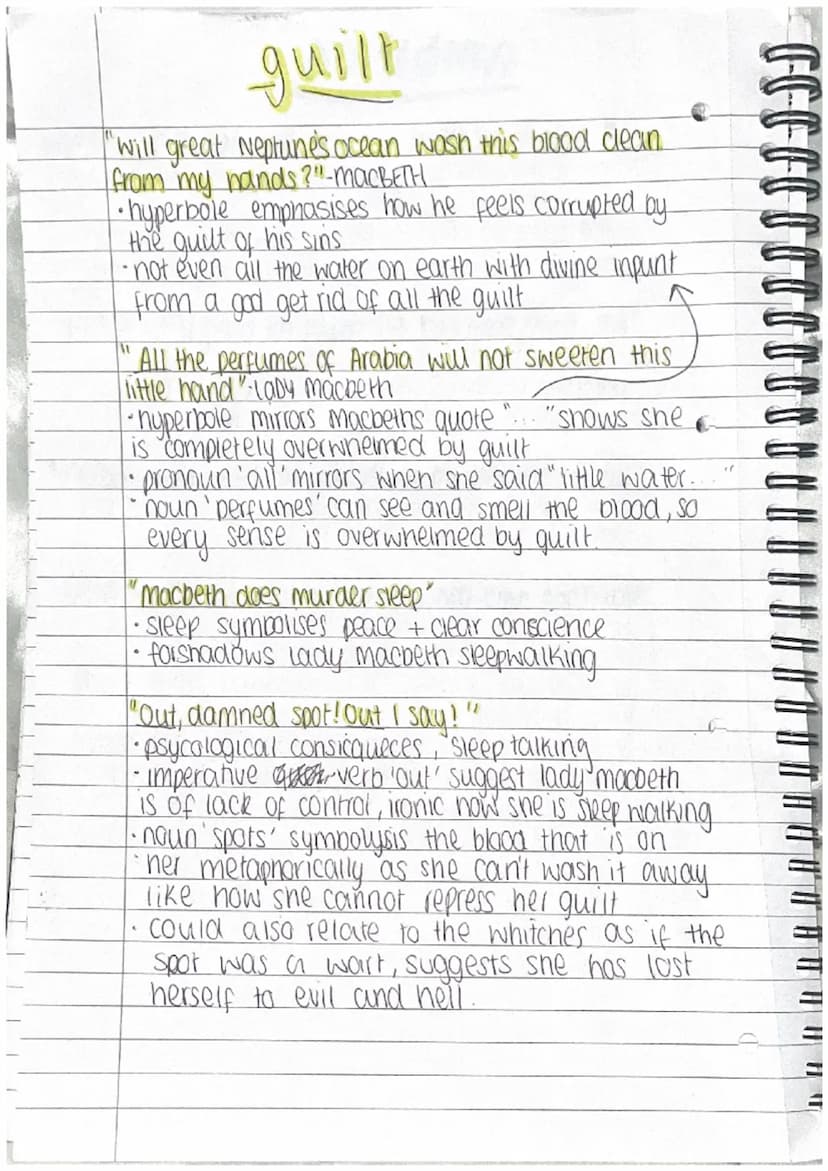 guilt
"Will great Neptune's ocean wash this blood clean
from my hands?"-MACBETH
• hyperbole emphasises how he feels corrupted by
the guilt of his sins
• not even all the water on earth with divine inpunt
from a god get rid of all the guilt
"All the perfumes of Arabia will not sweeten this
little hand"-Lady Macbeth
• hyperbole mirrors Macbeths quote "..." shows she
is completely overwhelmed by guilt
• pronoun 'all' mirrors when she said "little water..."
• noun 'perfumes' can see and smell the blood, so
every sense is overwhelmed by guilt.
"Macbeth does murder sleep"
• sleep symbolises peace + clear conscience
• forshadows lady macbeth sleepwalking
"Out, damned spot! Out I say!"
• psycological consicqueces, sleep talking
• imperative verb 'out' suggest lady macbeth
is of lack of control, ironic how she is sleep walking
• noun 'spots' symbolysis the blood that is on
her metaphorically as she can't wash it away
like how she cannot repress her guilt
• could also relate to the whitches as if the
spot was a wart, suggests she has lost
herself to evil and hell.